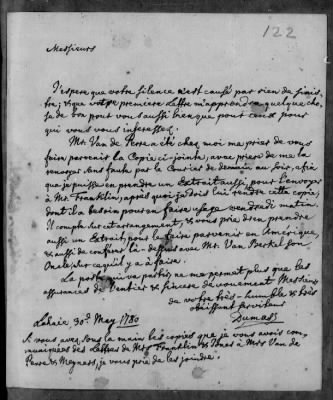 122
Messieurs
J'espere que votre silence n'est causé par rien de sinis-
tre; & que votre premiere Lettre m'apprendra quelque cho-
se de bon pour vous aussi bien que pour ceux pour
qui vous vous intéressez.
Mr. Van de Perre de chez moi me prie de vous
faire parvenir la Copie ci-jointe, avec priere de me la
renvoyer sans faute par le Courier de demain au soir, afin
que je puisse en prendre un Extrait aussi pour l'envoyer
à Mr. Franklin, après quoi je dois lui rendre cette copie,
dont il a besoin pour en faire usage vendredi matin.
Il compte sur cet arrangement, & vous prie d'en prendre
aussi un Extrait, pour la faire parvenir en Amérique,
& aussi de conférer là-dessus avec Mr. Van Berkel son
Oncle, sur ce qu'il y a à faire.
La poste qui va partir ne me permet plus que les
assurances de l'entier & sincere dévouement Messieurs
de votre très-humble & très
obéissant serviteur
Dumas
Lahaie 30e. May 1780
Si vous avez sous la main les copies que je vous avois com-
muniquées des Lettres de Mrs Franklin & Jones à Mrs Van de
Perre & Meyners, je vous prie de les joindre.